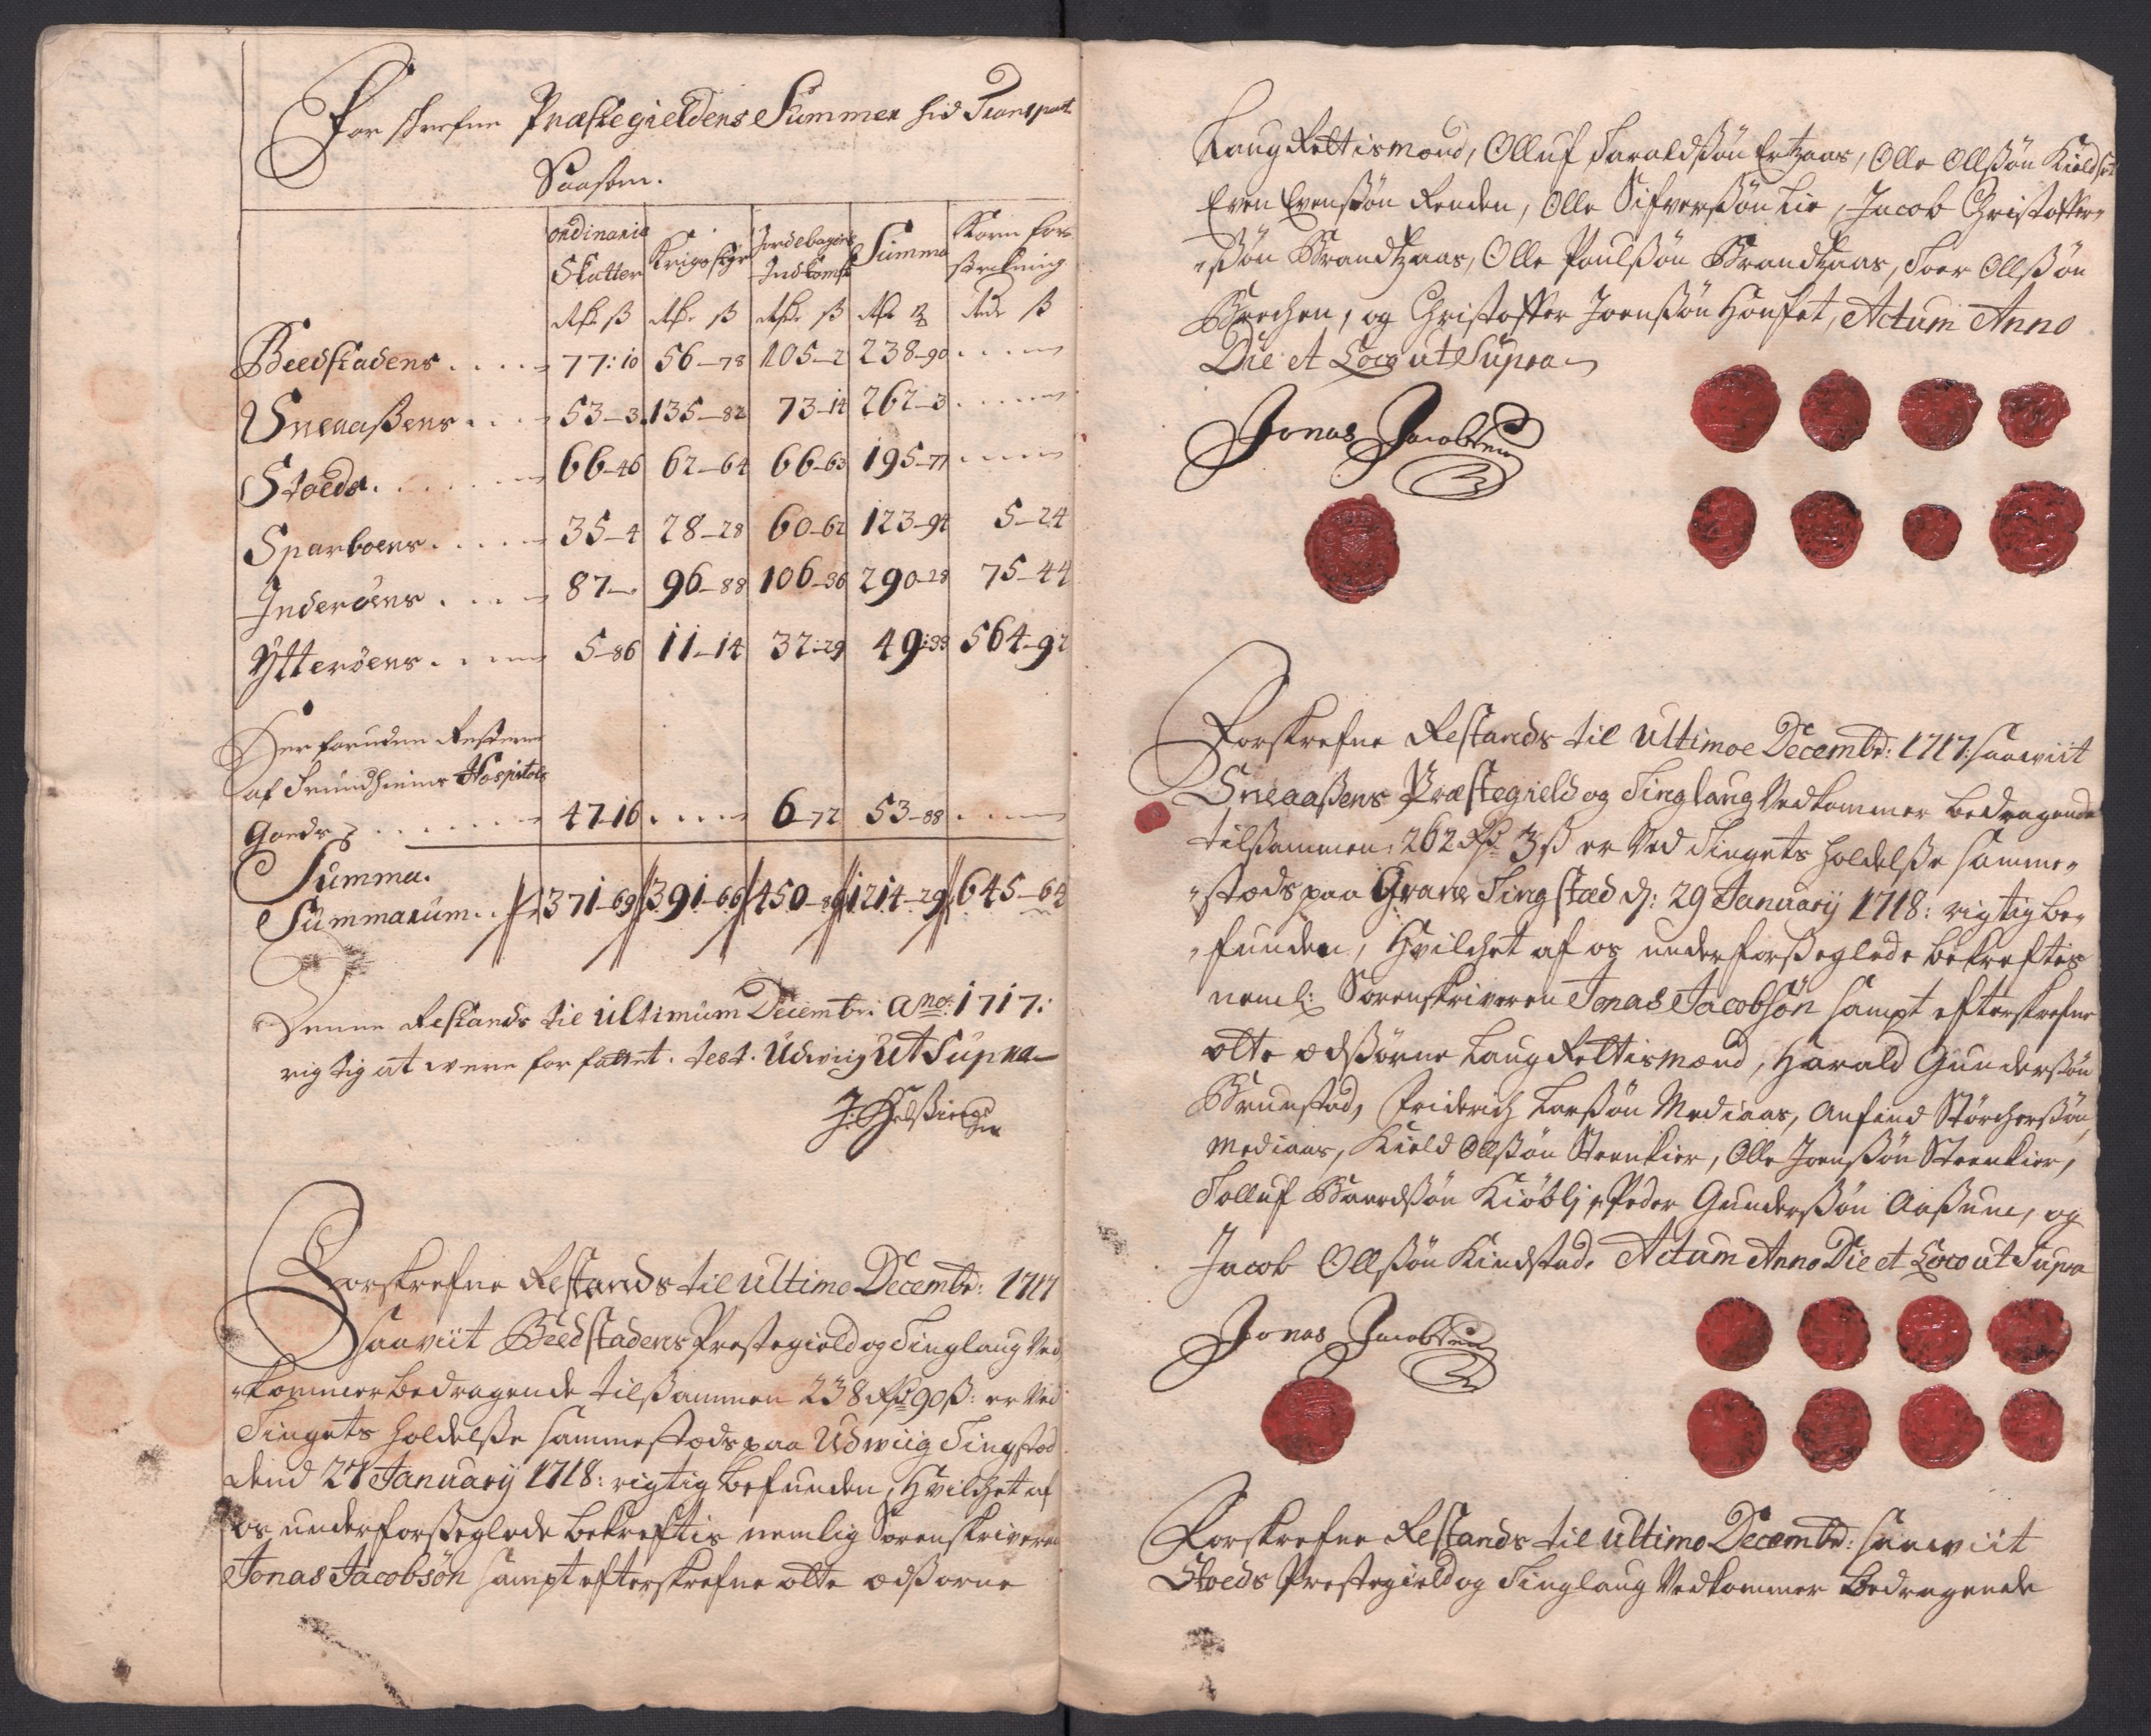 For skrefne Præstegieldens Summer hid Transport
Saasom.
ordinarie Skatter Krigs styr Jordebogens Indkomst Summa Korn for strekning
Rdr ß Rdr ß Rdr ß Rdr ß Rdr ß
Beedstadens . . . . 77: 10 56-78 105-2 238-90 . . . .
Sneaaßens . . . 53-3 135-82 73-14 262-3 . . . .
Stoeds . . . . . . 66-46 62-64 66-63 195-77 . . . .
Sparboens . . . . . 35-4 28-28 60-62 123-94 5-24
Inderøens . . . . 87-. 96-88 106-36 290-28 75-44
Ytterøens . . . . 5-86 11-14 32:29 49:33 564-92
Her foruden Resterer
af Trundhiems Hospitals
Goeds . . . . . . 47-16 . . . . 6-72 53-88 . . . .
Summa
Summarum . . 371-69 391-66 450-86 1214-29 645-64
Denne Restands til ultimum Decembr: Ano: 1717:
rigtig at were for fattet. test. Udwiig Ut Supra
Forskrefne Restands til ultimo Decembr: 1717
saaviit Beedstadens Prestegield og Tinglaug Ved
kommer bedragende tilßammen 238 Rdr 90 ß: er Ved
Tingets holdelße sammestæds paa Udwiig Tingstæd
dend 27 January 1718: rigtig befunden, Hvilchet af
os underforßeglede bekreftis nemlig Sorenskriveren
Jonas Jacobsøn sampt efterskrefne otte ædßorne
LaugRettismænd, Olluf Haraldßøn Ertzaas, Olle Ollßøn
Even Evenßøn Renden, Olle Sifverßøn Lie, Jacob Christoffer
ßøn Brandtzaas, Olle Poulßøn Brandtzaas, Toer Ollßøn
Brechen, og Christoffer Joenßøn Houset, Actum Anno
Die et Loco ut Supra
Jonas Jacobsen
Forskrefne Restands til ultimoe Decembr: 1717: saawiit
Sneaaßens Præstegield og Tinglaug Vedkommer bedragende
tilßammen: 262 Rdr 3 ß er Ved Tingets holdelße samme
stæds paa Grane Tingstæd d: 29 January 1718: rigtig be
funden, Hvilchet af os underforßeglede bekreftis
neml: Sorenskriveren Jonas Jacobsøn sampt efterskrefne
otte ædßorne LaugRettismænd, Harald Gunderßøn
Brunstad, Friderich Larßøn Mediaas, Anfind Størcherßøn
Mediaas, Kield Ollßøn Steenkier, Olle Joenßøn Steenkier,
Tolluf Baardßøn Kiøbli, Peder Gunderßøn Aaßum, og
Jacob Ollßøn Kindstad. Actum Anno Die et Loco ut Supra
Jonas Jacobsen
Forskrefne Restands til ultimo Decembr: saawiit
Stoeds Prestegield og Tinglaug Vedkommer Bedragende